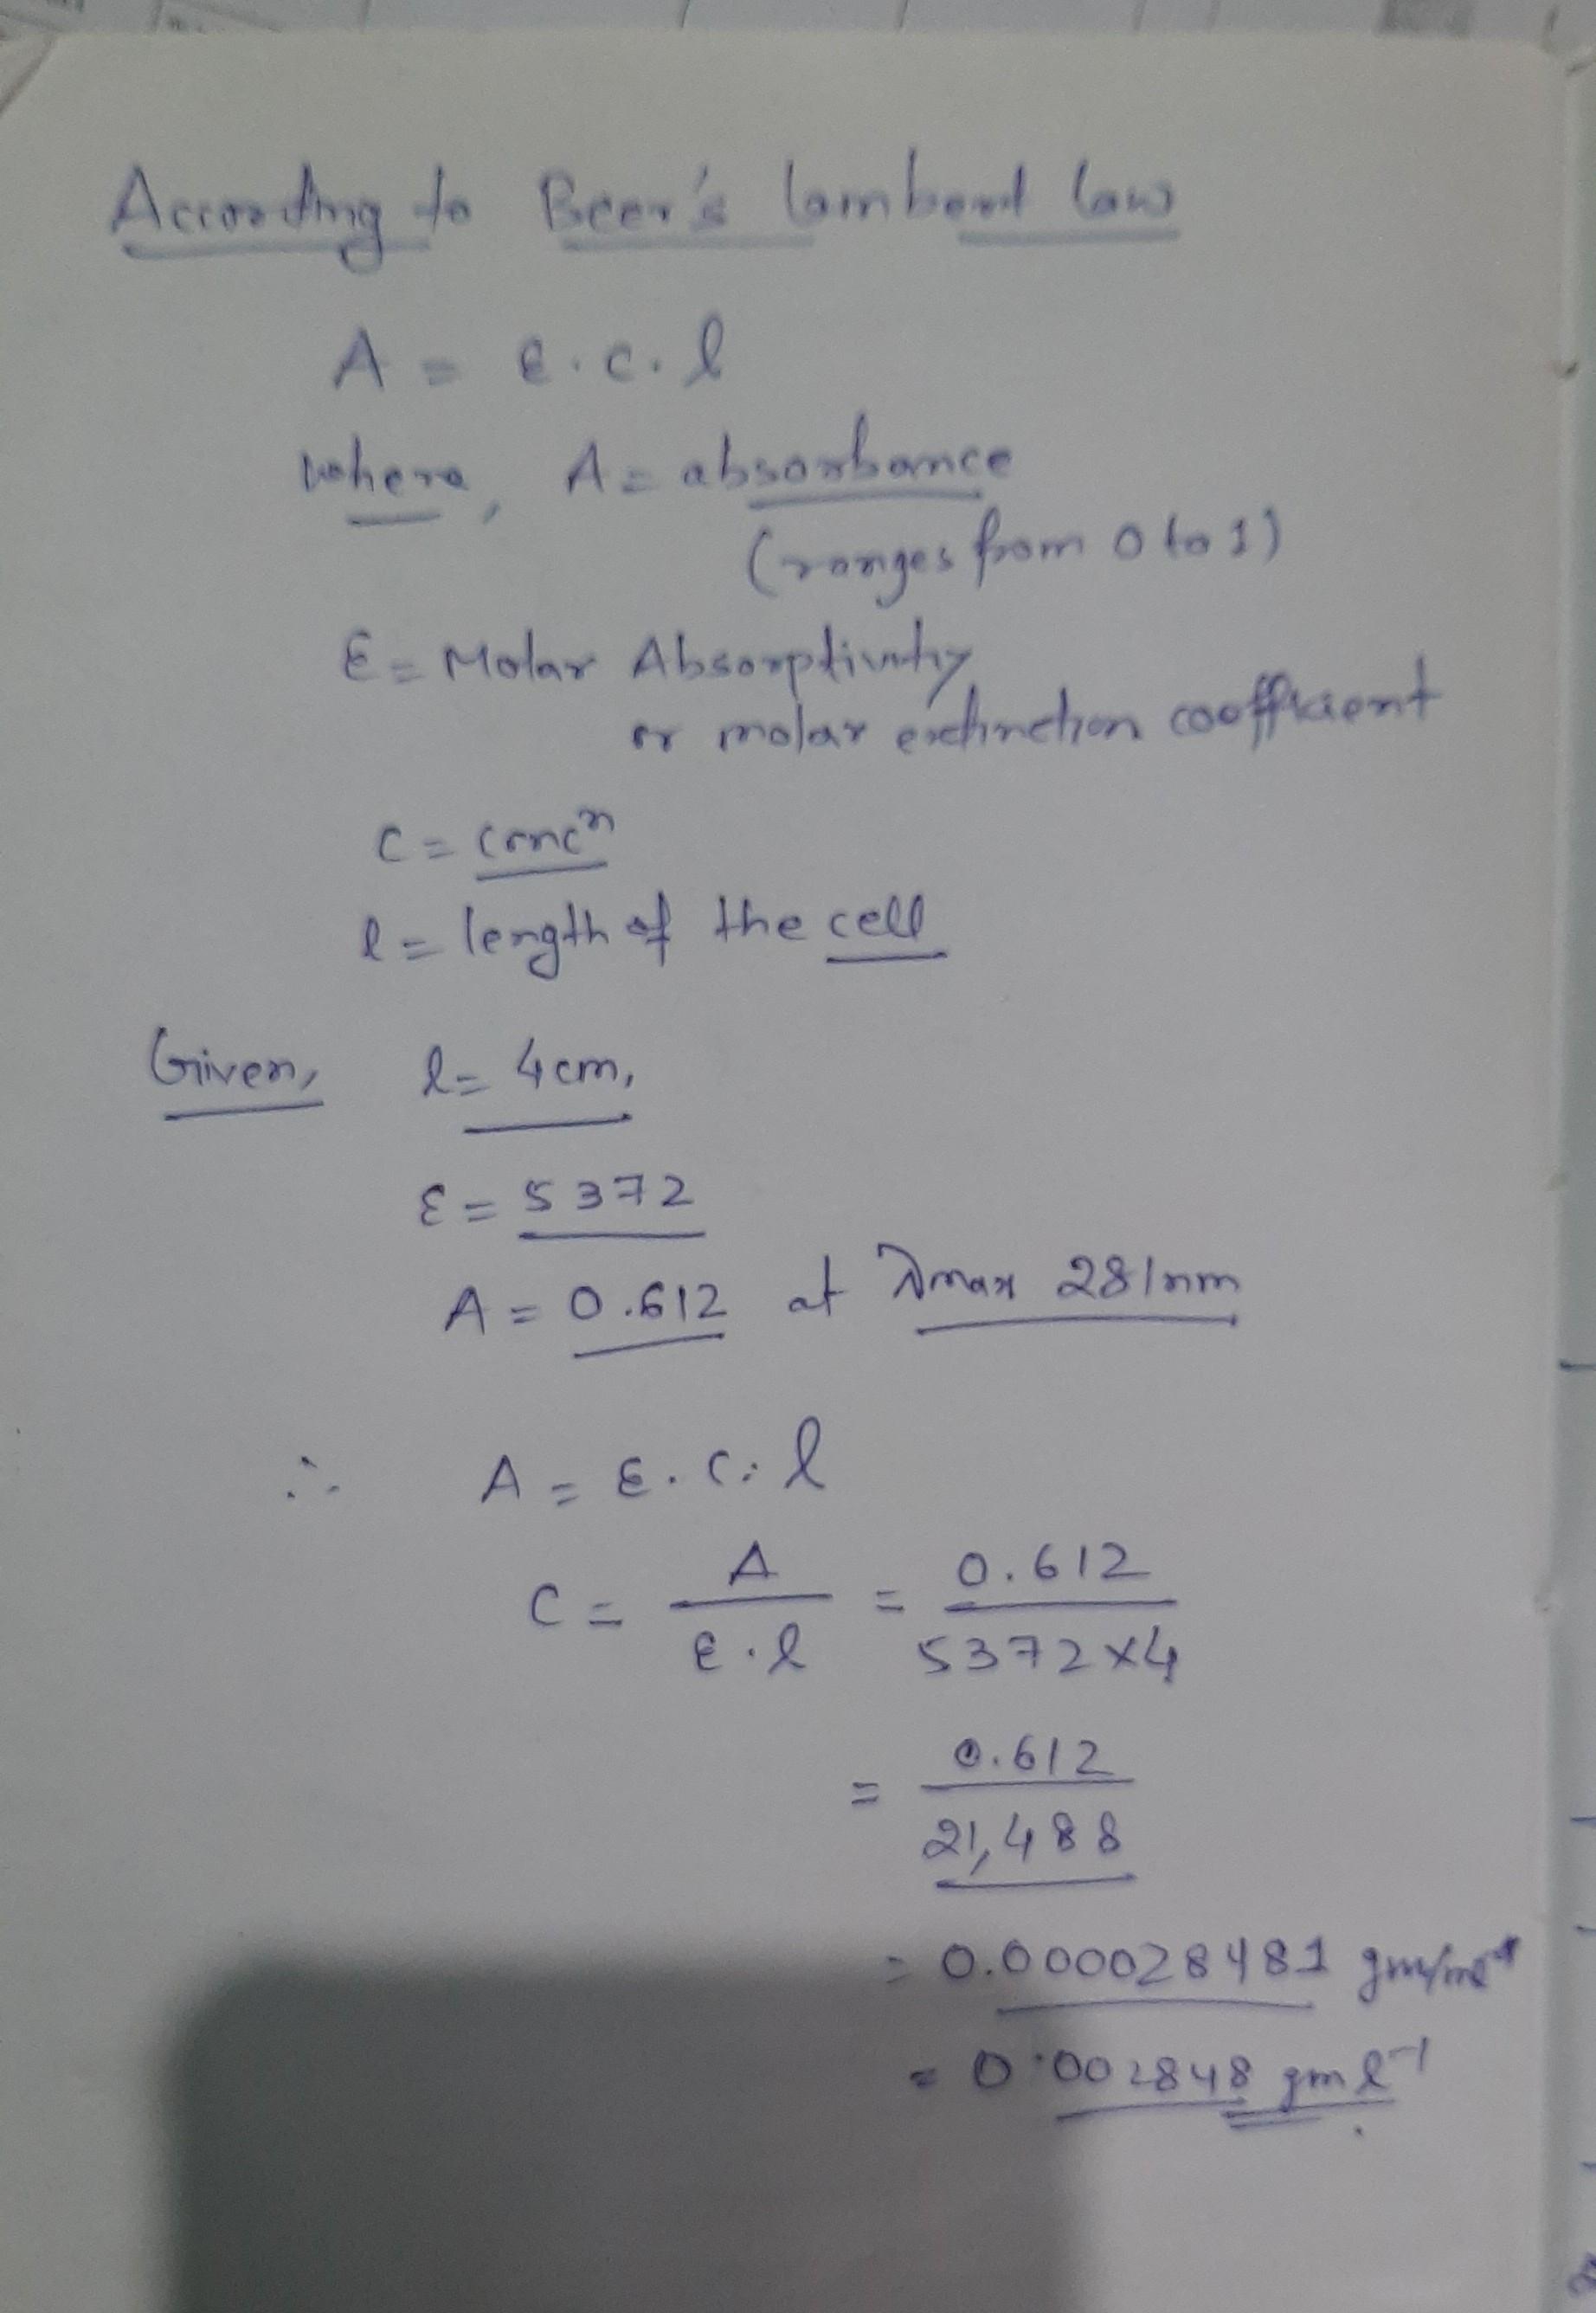 According to Beer's lambert law
A = ε.c.l
where, A = absorbance
(ranges from 0 to 1)
ε = Molar Absorptivity
or molar extinction coefficient
c = concⁿ
l = length of the cell
Given, l = 4cm,
ε = 5372
A = 0.612 at λmax 281nm
∴ A = ε.c.l
C = A / ε.l = 0.612 / 5372 x 4
= 0.612 / 21,488
= 0.000028481 gm/ml
= 0.002848 gm l⁻¹